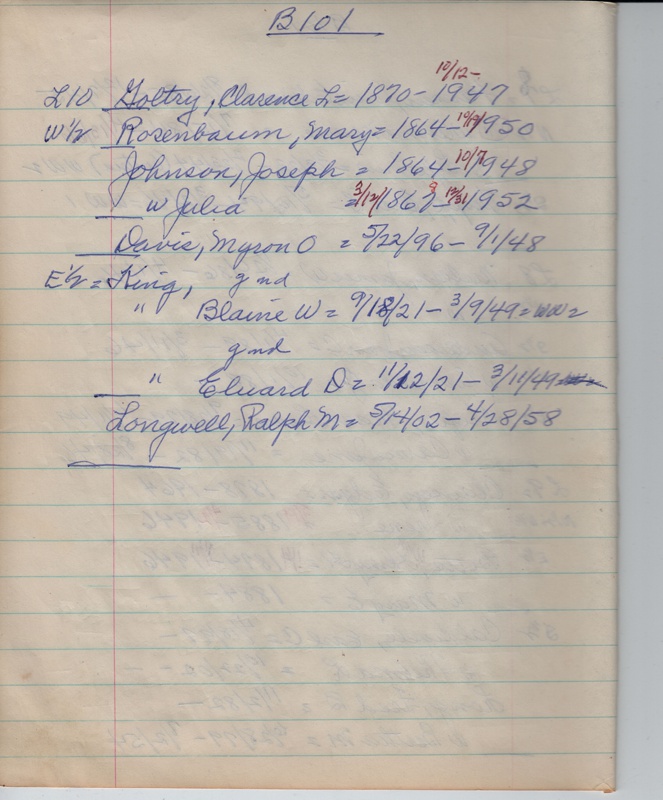 B101
10/12-
L10 Goltry, Clarence L = 1870-1947
W 1/2 Rosenbaum, Mary = 1864-10/7/1950
Johnson, Joseph = 1864-10/7/1948
w Julia = 3/12/1867-12/31/1952
Davis, Myron O = 5/22/96-9/1/48
E 1/2 = King, gnd
" Blaine W = 9/18/21-3/9/49 = WW =
gnd
" Eluard D = 11/22/21-3/11/49
Longwell, Ralph M = 5/14/02-4/28/58